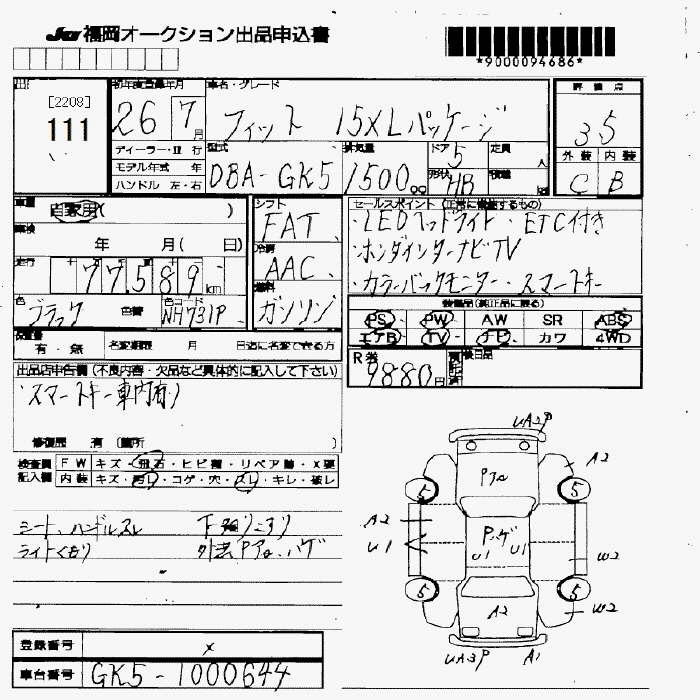 JU福岡オークション出品申込書
*9000094686*
[2208]
111
初年度登録年月
26 7月
車名・グレード
フィット 15XLパッケージ
評価点
3.5
外装 内装
C B
ディーラー・並行
モデル年式 年
ハンドル 左・右
型式
DBA-GK5
排気量
1500cc
ドア
5
形状
HB
定員
人
積載
kg
車歴
自家用( )
車検
年 月( 日)
走行
77,589km
色
ブラック
色替
色コード
NH731P
シフト
FAT
冷房
AAC
燃料
ガソリン
セールスポイント(正常に機能するもの)
・LEDヘッドライト・ETC付き
・ホンダインターナビTV
・カラーバックモニター・スマートキー
装備品(純正品に限る)
PS PW AW SR ABS
エアB TV ナビ カワ 4WD
有・無 名変期限 月 日迄に名変できる方
R券
9880円
後日品
出品店申告欄(不良内容・欠品など具体的に記入して下さい)
・スマートキー車内有り
修復歴 有(箇所 )
検査員 FW キズ・飛石・ヒビ割・リペア跡・X要
記入欄 内装 キズ・汚レ・コゲ・穴・スレ・キレ・破レ
シート、ハンドルスレ 下廻りこすり
ライトくもり
UA2P
A2
Pアル
5 5
A2
U1
U1 U1
W2
5 5
A2
W2
UA3P A1
登録番号 x
車台番号 GK5-1000644